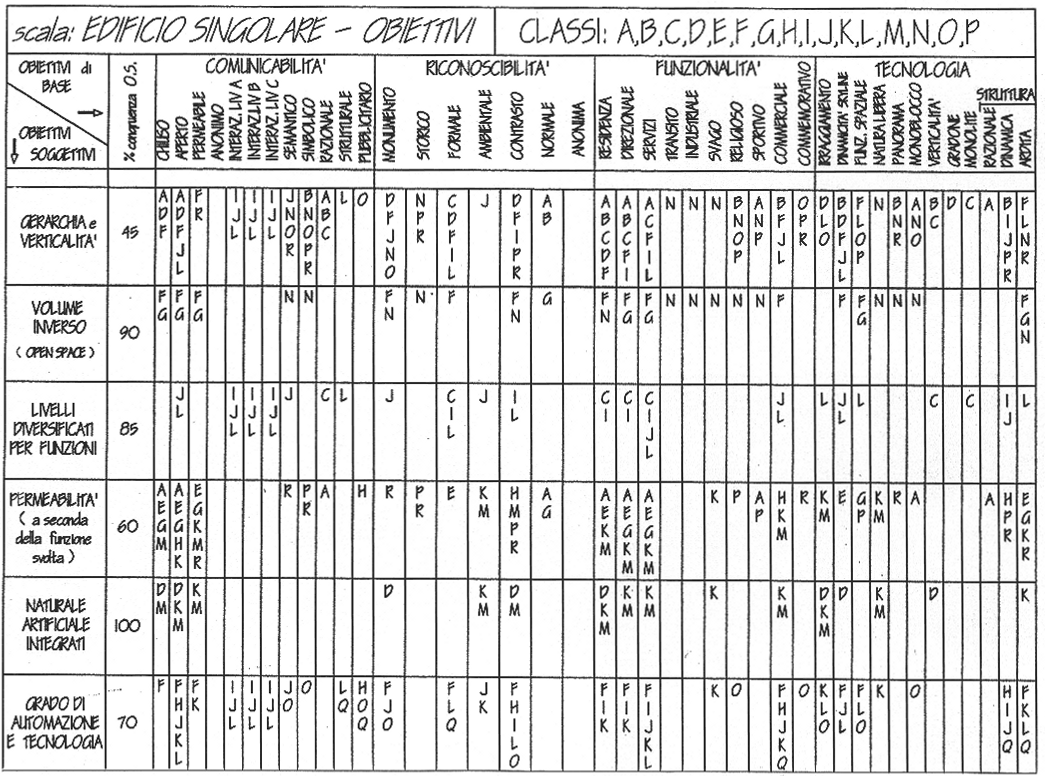 scala: EDIFICIO SINGOLARE – OBIETTIVI CLASSI: A,B,C,D,E,F,G,H,I,J,K,L,M,N,O,P
OBIETTIVI di BASE
OBIETTIVI SOGGETTIVI
% conseguenza O.S.
COMUNICABILITA' RICONOSCIBILITA' FUNZIONALITA' TECNOLOGIA
STRUTTURA
CHIUSO APERTO PERMEABILE ANONIMO INTERAZ. LIV A INTERAZ. LIV B INTERAZ. LIV C SEMANTICO SIMBOLICO RAZIONALE STRUTTURALE PUBBLICITARIO MONUMENTO STORICO FORMALE AMBIENTALE CONTRASTO NORMALE ANONIMA RESIDENZA DIREZIONALE SERVIZI TRANSITO INDUSTRIALE SVAGO RELIGIOSO SPORTIVO COMMERCIALE COMMEMORATIVO IRRAGGIAMENTO DINAMICITA' SKYLINE FUNZ. SPAZIALE NATURA LIBERA PANORAMA MONOBLOCCO VERTICALITA' GRADONE MONOLITE RAZIONALE DINAMICA ARDITA
GERARCHIA e VERTICALITA' 45 ADF ADFJL FR IJL IJL IJL JNOR BNOPR ABC L O DFJNO NPR CDFIL J DFIPR AB ABCDF ABCFI ACFIL N N N BNOP ANP BFJL OPR DLO BDFJL FLOP N BNR ANO BC D C A BIJPR FLNR
VOLUME INVERSO ( OPEN SPACE ) 90 FG FG FG N N FN N F FN G FN FG FG N N N N N F F FG N N N FGN
LIVELLI DIVERSIFICATI PER FUNZIONI 85 JL IJL IJL IJL J C L J CIL J IL CI CI CIJL JL L JL L C C IJ L
PERMEABILITA' ( a seconda della funzione svolta ) 60 AEGM AEGHK EGKMR R PR A H R PR E KM HMPR AG AEKM AEGKM AEGKM K P AP HKM R KM E GP KM R A A HPR EGKR
NATURALE ARTIFICIALE INTEGRATI 100 DM DKM KM D KM DM DKM KM KM K KM DKM D KM D K
GRADO DI AUTOMAZIONE E TECNOLOGIA 70 F FHJKL FK IJL IJL IJL JO O LQ HOQ FJO FLQ JK FHILO FIK FIK FIJKL K O FHJKQ O KLO FJL FLO K O HIJQ FKLQ